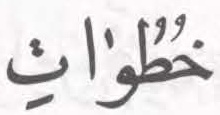 خُطُوَٰاتِ